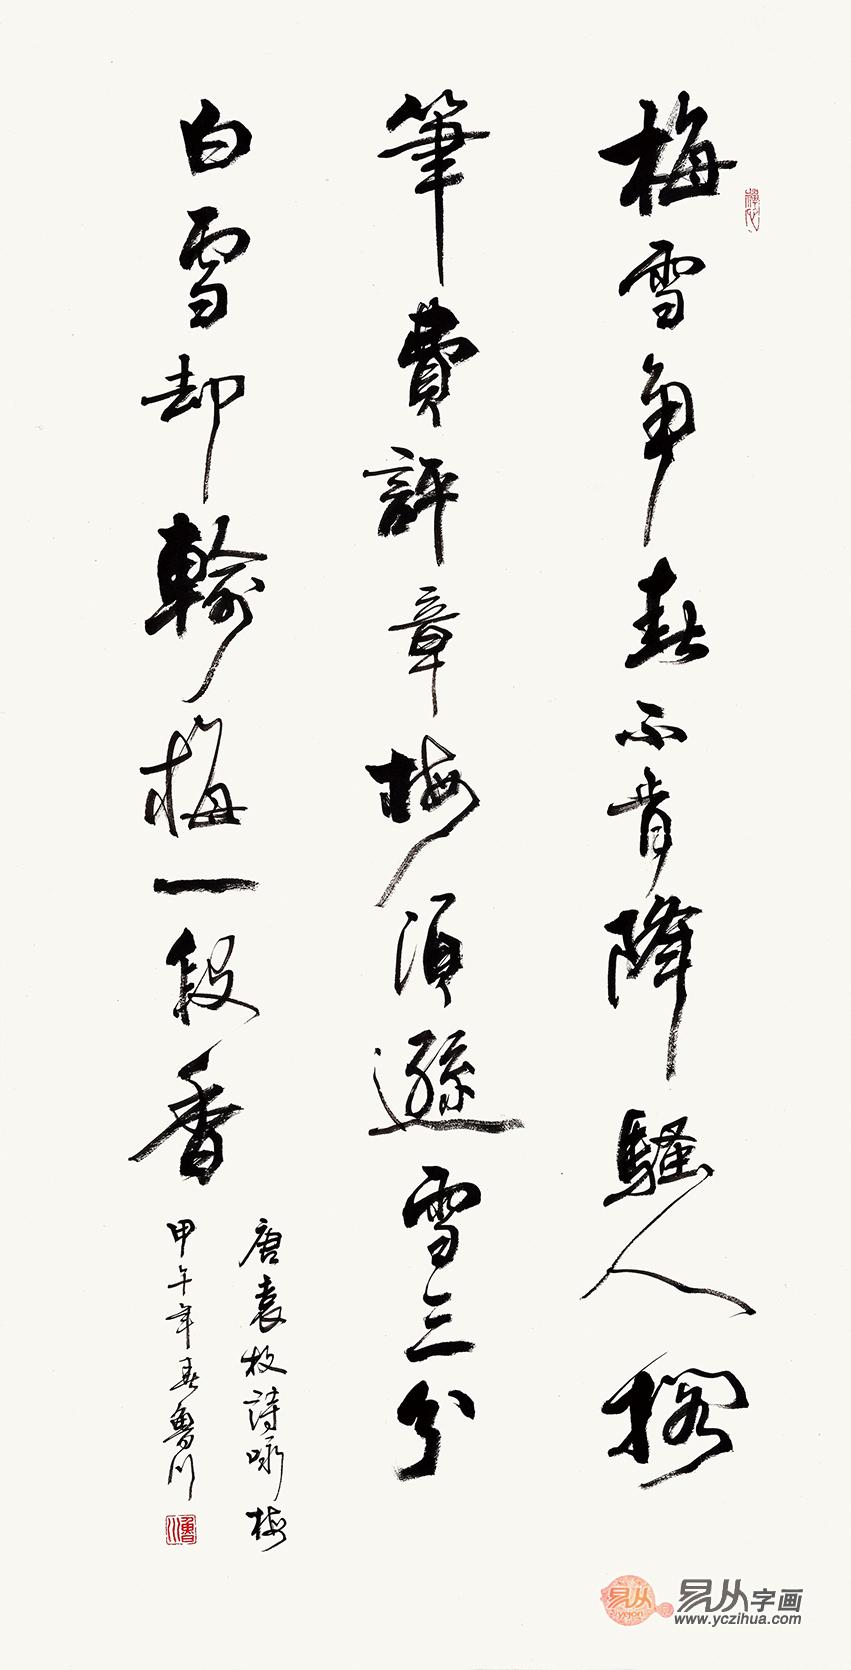 梅雪争春不肯降騷人擱
筆費評章梅須遜雪三分
白雪却輸梅一段香
唐袁枚詩咏梅
甲午年春魯川
魯川
易从
易从字画
www.yczihua.com